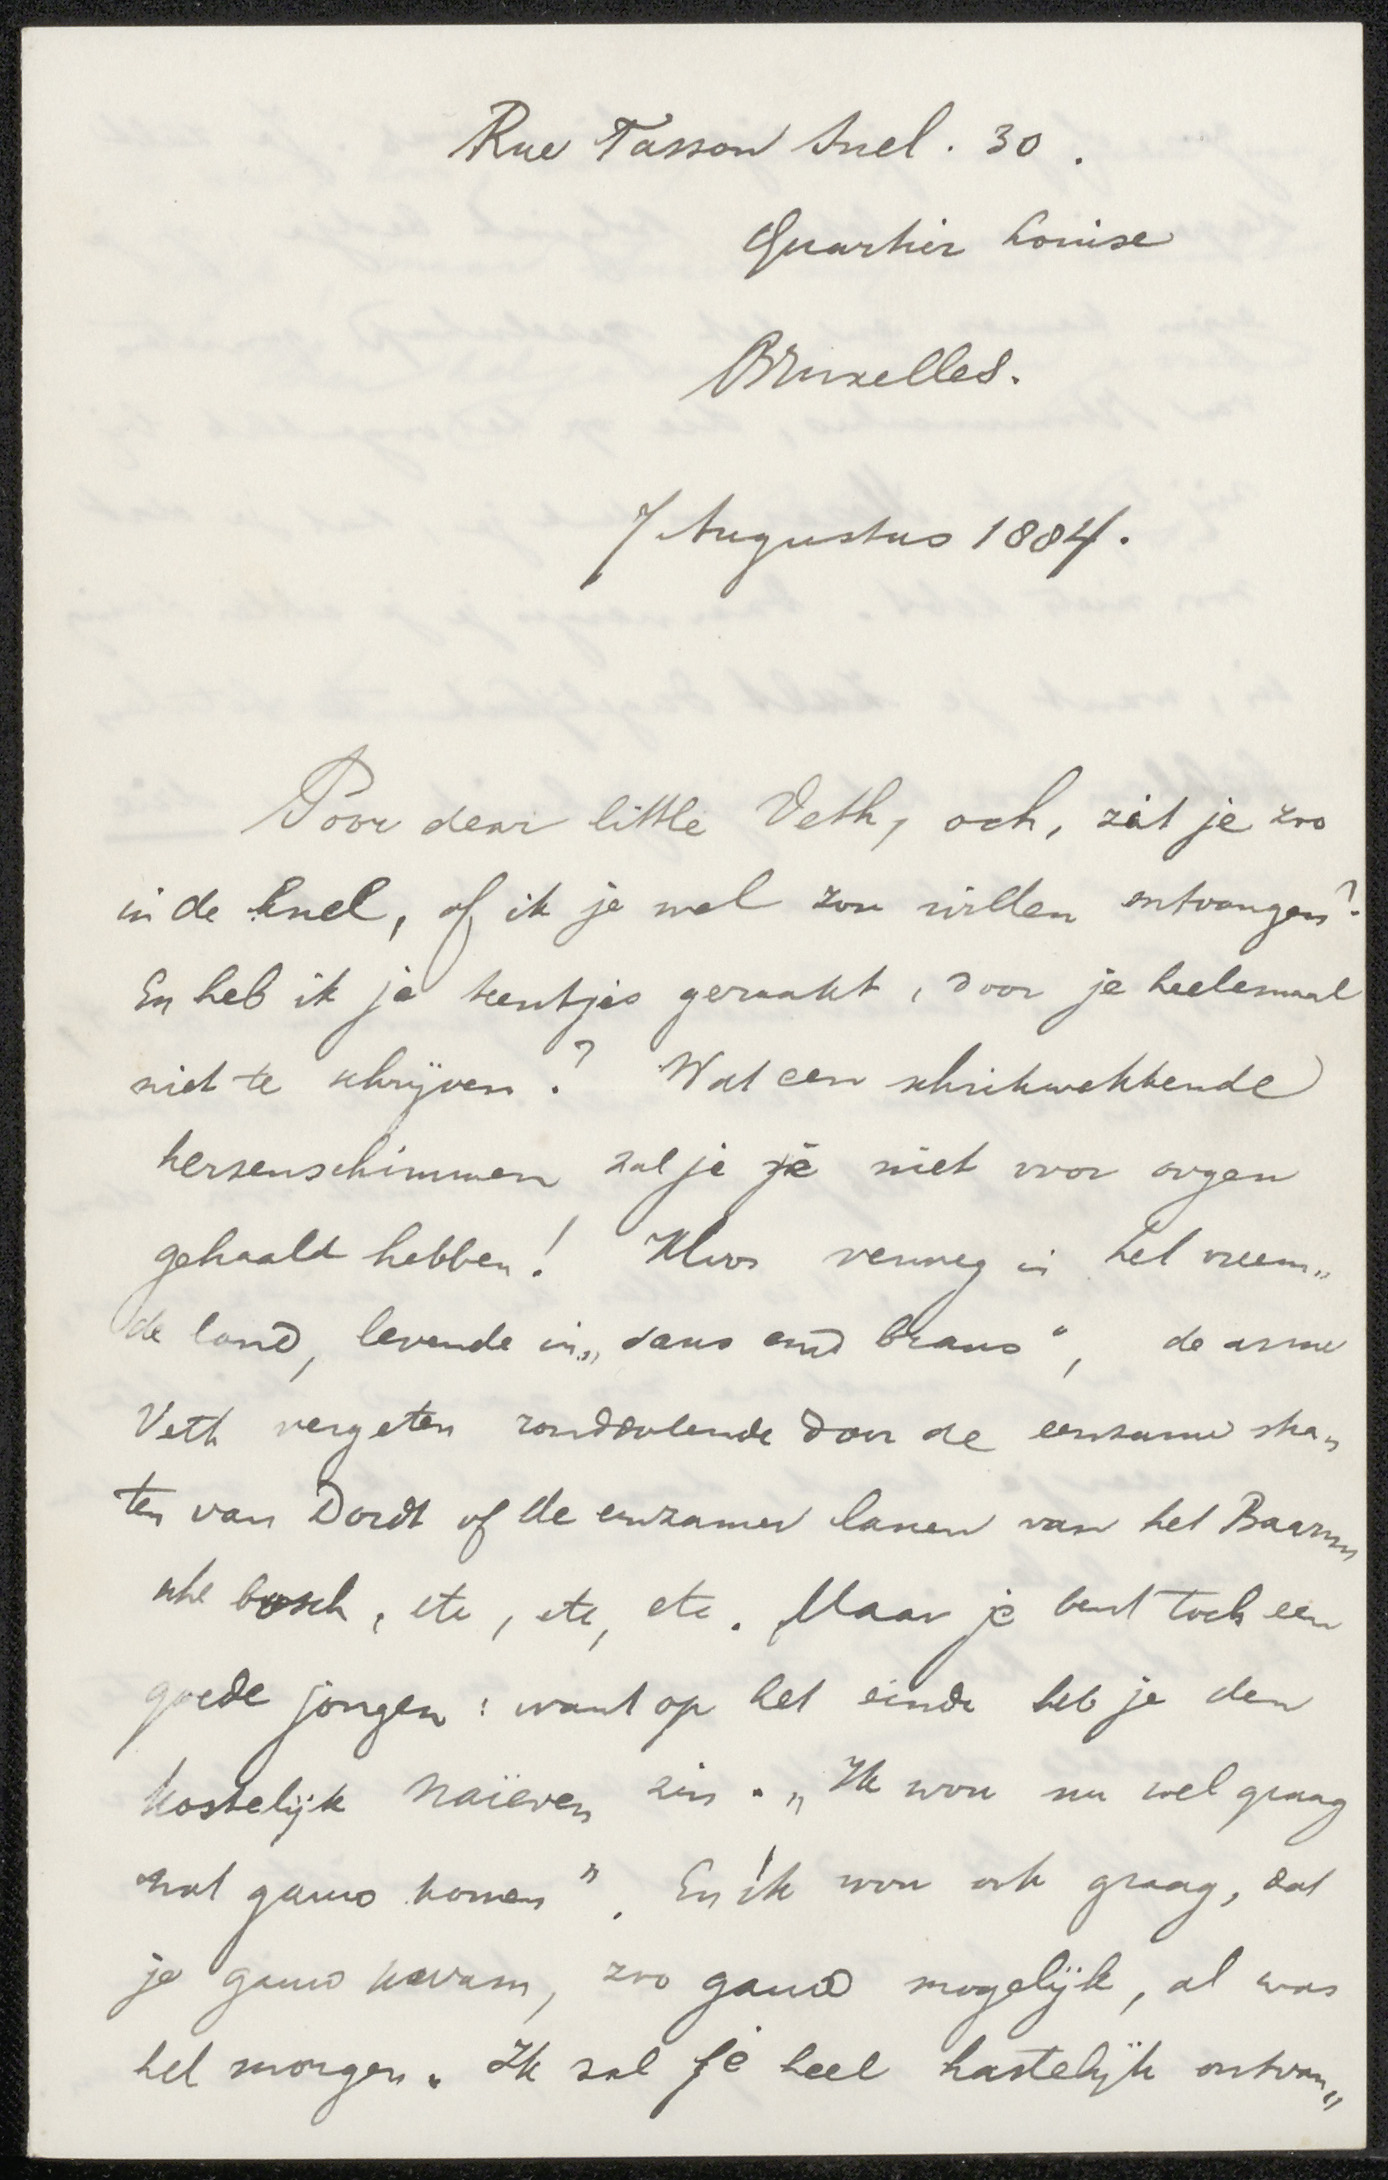 Rue Tasson Snel. 30.
Quartier Louise
Bruxelles.
7 Augustus 1884.
Poor dear little Veth, och, zat je zoo
in de knel, of ik je wel zou willen ontvangen?
En heb ik je teentjes geraakt, door je heelemaal
niet te schrijven? Wat een schrikwekkende
hersenschimmen zal je je niet voor oogen
gehaald hebben! Kloos verweg in het vreem„
de land, levende in „saus and braus“, de arme
Veth vergeten ronddolende door de eenzame stra„
ten van Dordt of de eenzamer lanen van het Baarn„
sche bosch, etc, etc, etc. Maar je bent toch een
goede jongen: want op het einde heb je den
kostelijk naïeven zin. „Ik wou nu wel graag
wat gauw komen”. En ik wou ook graag, dat
je gauw kwam, zoo gauw mogelijk, al was
het morgen. Ik zal je heel hartelijk ontvan„